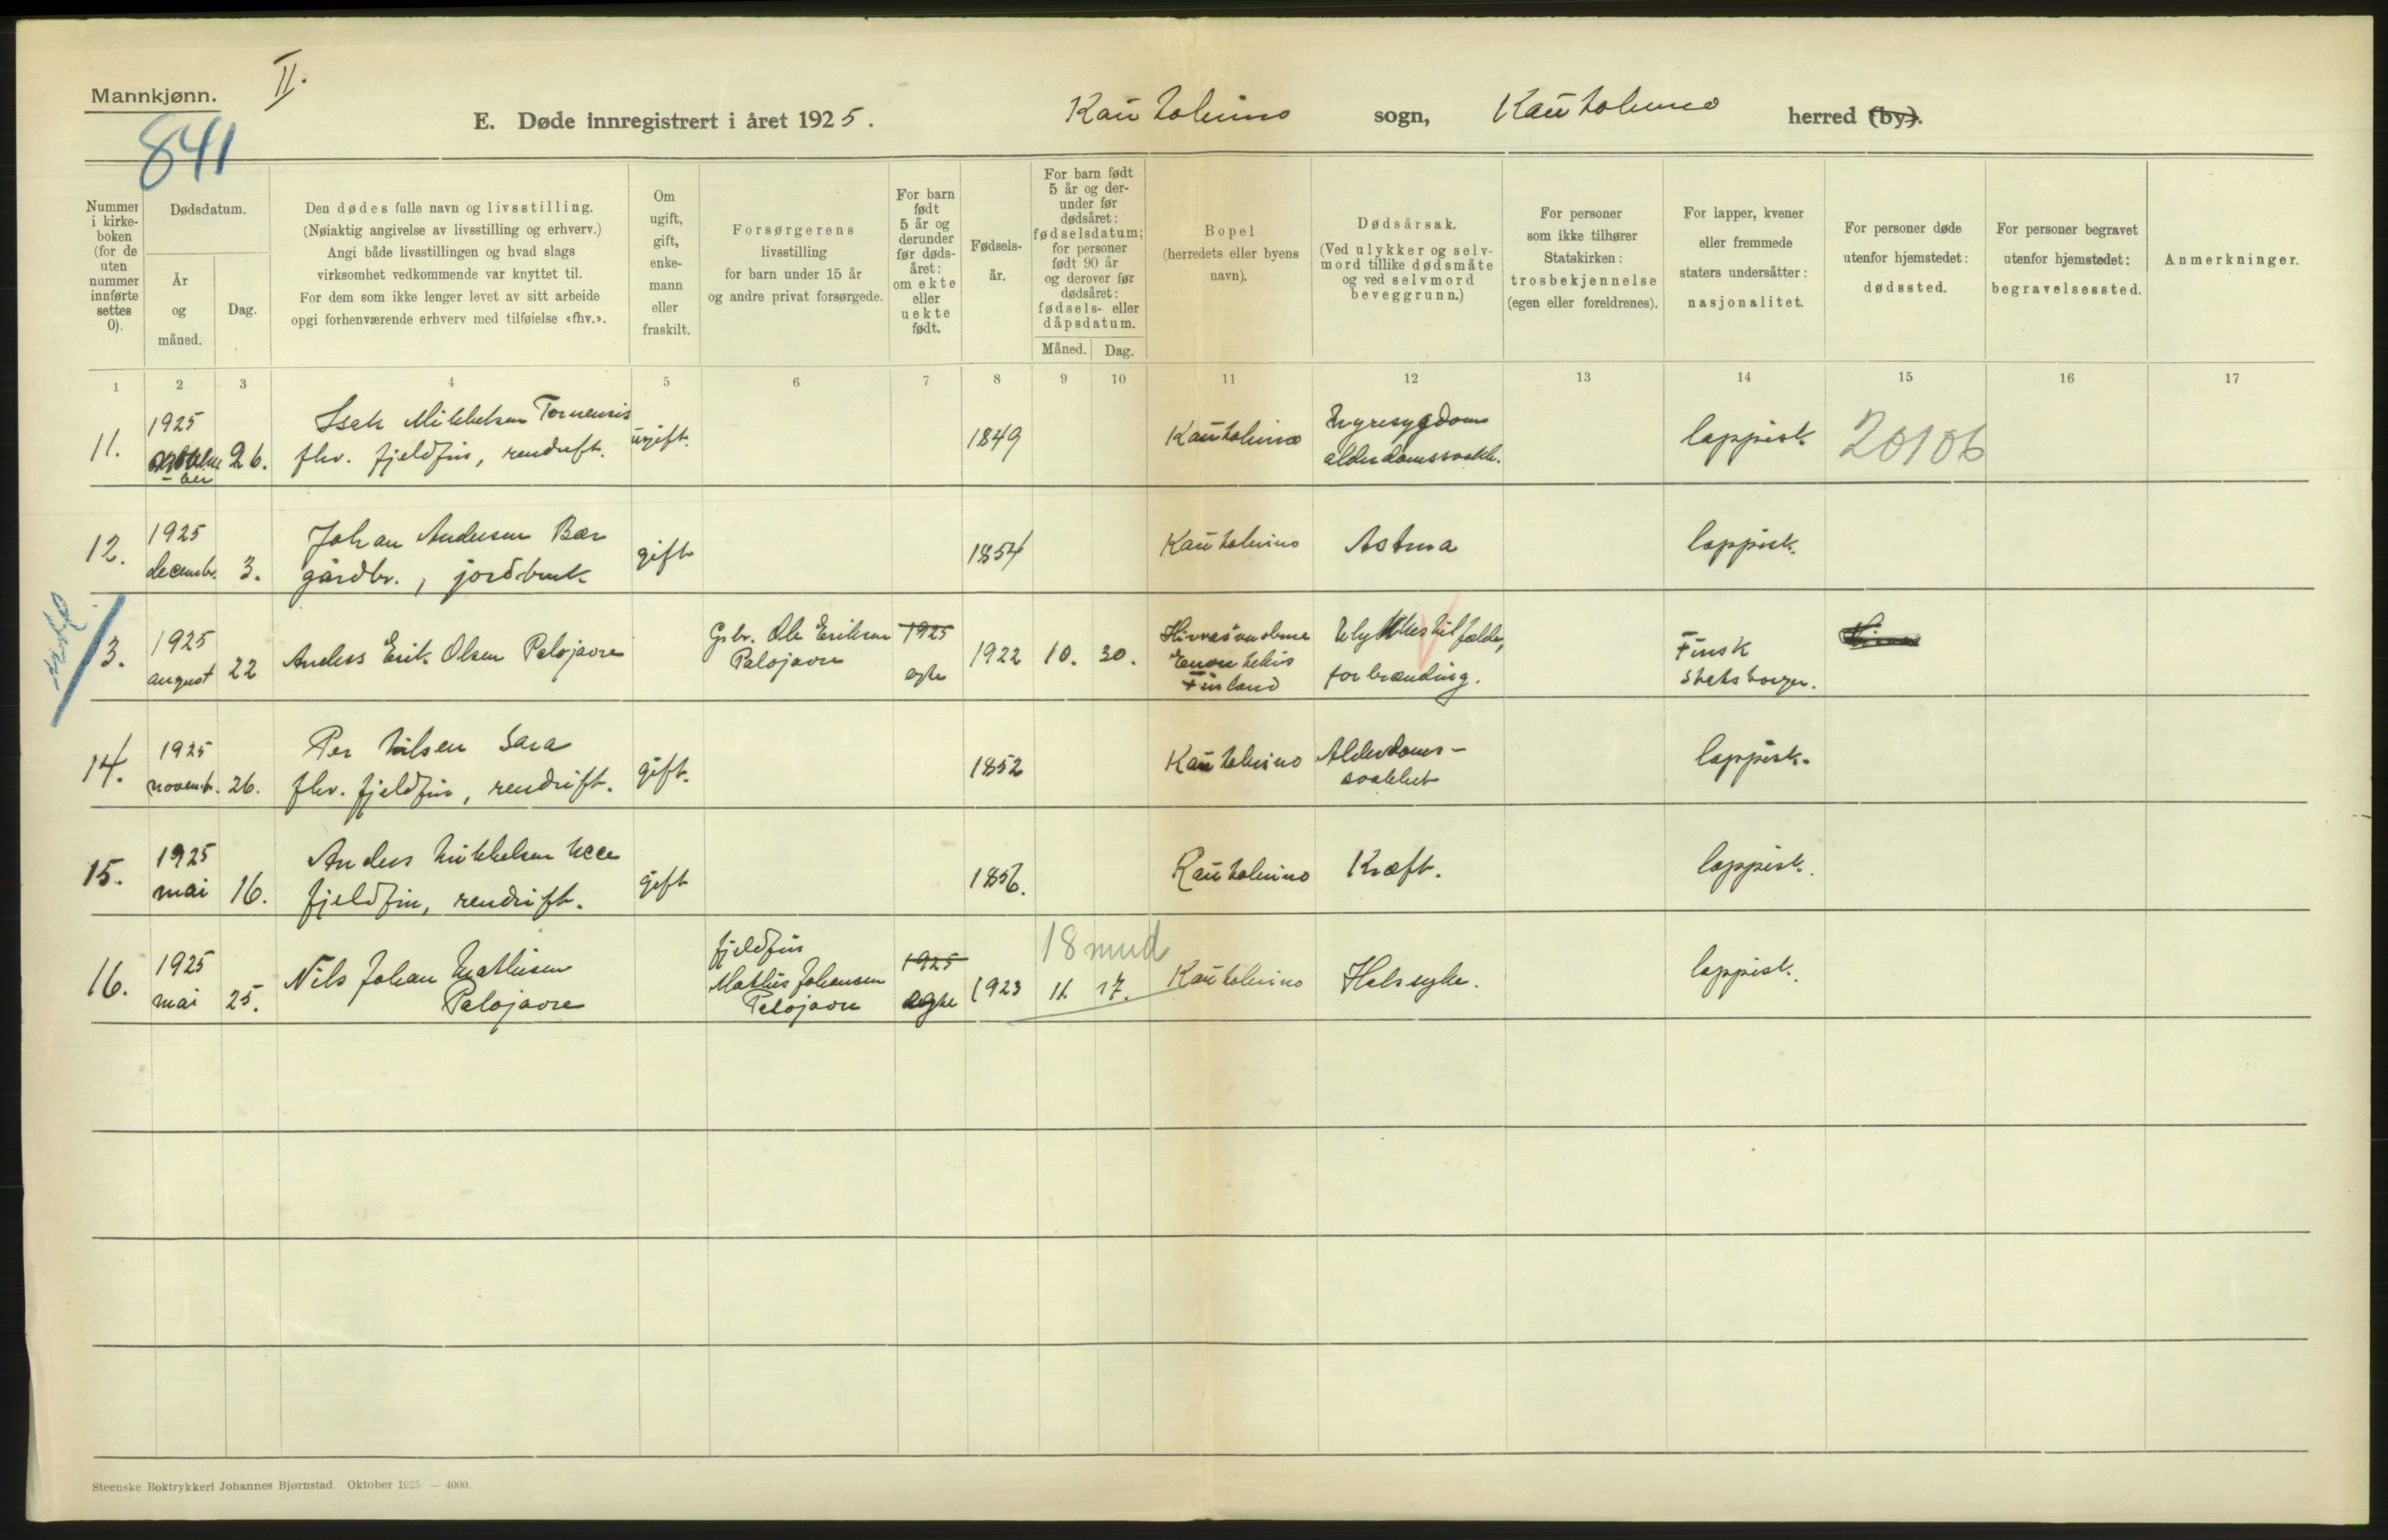 Mannkjønn.
II.
841
E. Døde innregistrert i året 1925.
Kautokeino sogn, Kautokeino herred (by).
Nummer i kirke-boken (for de uten nummer innførte settes 0).
Dødsdatum.
År og måned.
Dag.
Den dødes fulle navn og livsstilling.
(Nøiaktig angivelse av livsstilling og erhverv.)
Angi både livsstillingen og hvad slags
virksomhet vedkommende var knyttet til.
For dem som ikke lenger levet av sitt arbeide
opgi forhenværende erhverv med tilføielse «fhv.».
Om ugift, gift, enke-mann eller fraskilt.
Forsørgerens
livsstilling
for barn under 15 år
og andre privat forsørgede.
For barn født 5 år og derunder før døds-året: om ekte eller uekte født.
Fødsels-år.
For barn født 5 år og der-under før dødsåret: fødselsdatum; for personer født 90 år og derover før dødsåret: fødsels- eller dåpsdatum.
Måned. Dag.
Bopel
(herredets eller byens
navn).
Dødsårsak.
(Ved ulykker og selv-
mord tillike dødsmåte
og ved selvmord
beveggrunn.)
For personer
som ikke tilhører
Statskirken:
trosbekjennelse
(egen eller foreldrenes).
For lapper, kvener
eller fremmede
staters undersåtter:
nasjonalitet.
For personer døde
utenfor hjemstedet:
dødssted.
For personer begravet
utenfor hjemstedet:
begravelsessted.
Anmerkninger.
1 2 3 4 5 6 7 8 9 10 11 12 13 14 15 16 17
11. 1925 26. Isak Mikkelsen Tornensis
fhv. fjeldfin, rendrift. ugift. 1849 Kautokeino Nyresygdom
alderdomssvakk. lappisk. 20106
12. 1925 decembr. 3. Johan Andersen Bær
gårdbr., jordbruk. gift 1854 Kautokeino Astma lappisk.
13. 1925 august 22 Anders Erik Olsen Palojavre Gsbr. Ole Eriksen
Palojavre 1925
ægte 1922 10. 30.
Enontekis
Finland Ulykkestilfælde,
forbrænding. Finsk
statsborger.
14. 1925 novemb. 26. Per Nilsen Sara
fhv. fjeldfin, rendrift. gift. 1852 Kautokeino Alderdoms-
svakhet lappisk.
15. 1925 mai 16. Anders Mikkelsen Utce
fjeldfin, rendrift. gift 1856. Kautokeino Kræft. lappisk.
16. 1925 mai 25. Nils Johan Mathisen
Palojavre fjeldfin
Mathis Johansen
Palojavre 1925
ægte 1923 11. 17. 18 mnd Kautokeino Halssyke. lappisk.
Steenske Boktrykkeri Johannes Bjørnstad. Oktober 1925 — 4000.